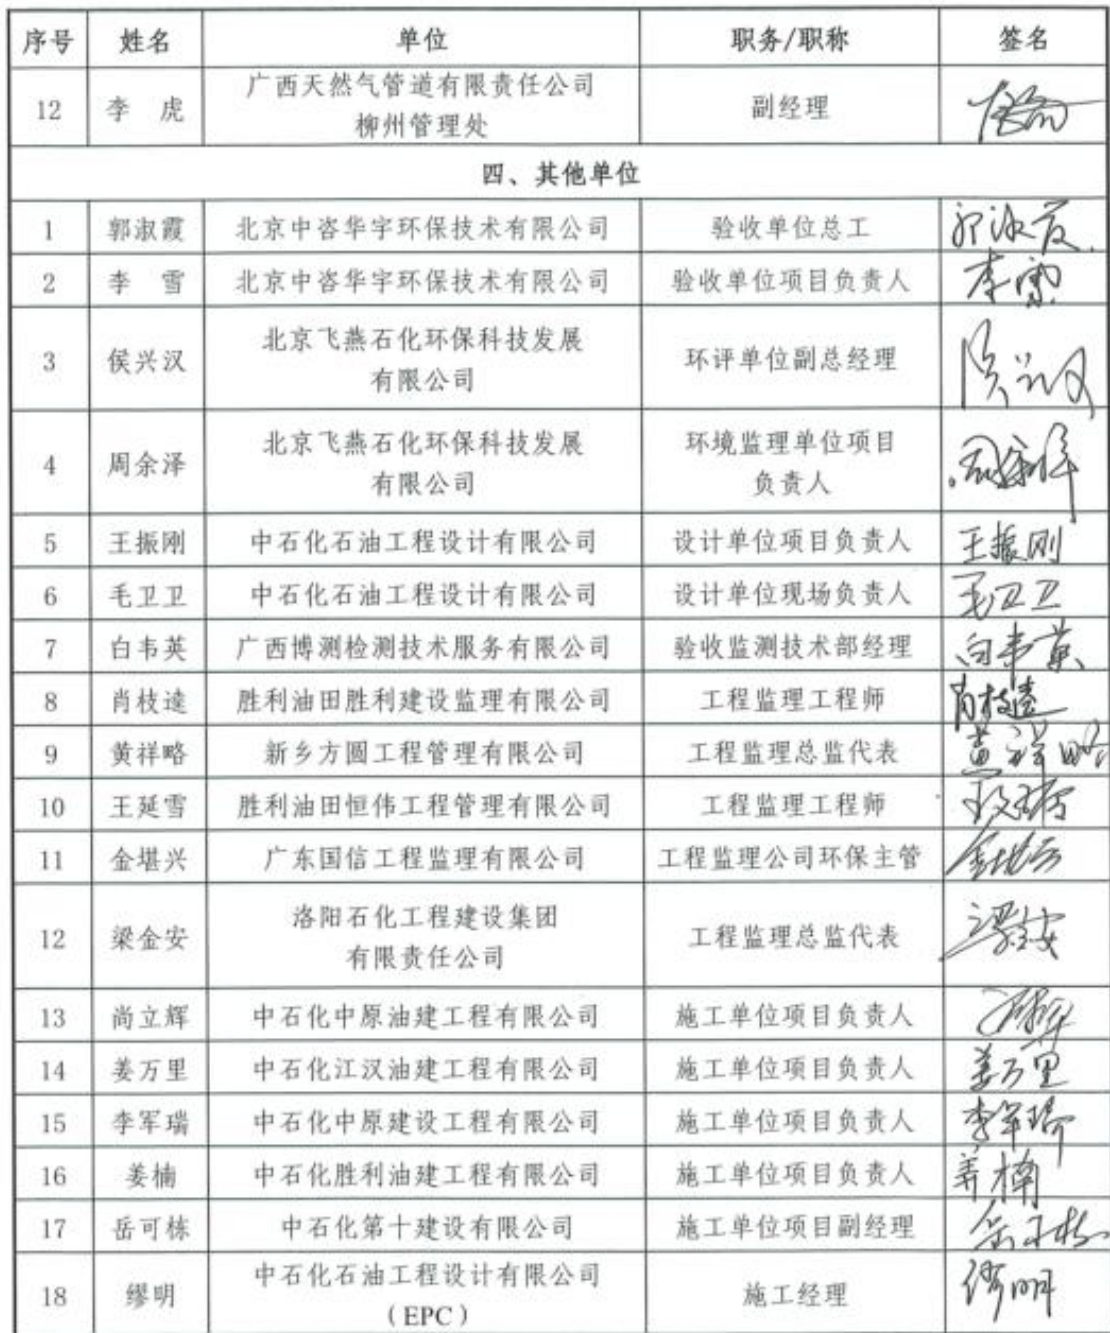 序号 姓名 单位 职务/职称 签名
12 李 虎 广西天然气管道有限责任公司 副经理
柳州管理处
四、其他单位
1 郭淑霞 北京中咨华宇环保技术有限公司 验收单位总工 郭淑霞
2 李 雪 北京中咨华宇环保技术有限公司 验收单位项目负责人 李雪
3 侯兴汉 北京飞燕石化环保科技发展 环评单位副总经理 侯兴汉
有限公司
4 周余泽 北京飞燕石化环保科技发展 环境监理单位项目 周余泽
有限公司 负责人
5 王振刚 中石化石油工程设计有限公司 设计单位项目负责人 王振刚
6 毛卫卫 中石化石油工程设计有限公司 设计单位现场负责人 毛卫卫
7 白韦英 广西博测检测技术服务有限公司 验收监测技术部经理 白韦英
8 肖枝逵 胜利油田胜利建设监理有限公司 工程监理工程师 肖枝逵
9 黄祥略 新乡方圆工程管理有限公司 工程监理总监代表 黄祥略
10 王延雪 胜利油田恒伟工程管理有限公司 工程监理工程师
11 金堪兴 广东国信工程监理有限公司 工程监理公司环保主管
12 梁金安 洛阳石化工程建设集团 工程监理总监代表 梁金安
有限责任公司
13 尚立辉 中石化中原油建工程有限公司 施工单位项目负责人
14 姜万里 中石化江汉油建工程有限公司 施工单位项目负责人 姜万里
15 李军瑞 中石化中原建设工程有限公司 施工单位项目负责人 李军瑞
16 姜楠 中石化胜利油建工程有限公司 施工单位项目负责人 姜楠
17 岳可栋 中石化第十建设有限公司 施工单位项目副经理 岳可栋
18 缪明 中石化石油工程设计有限公司 施工经理 缪明
（EPC）